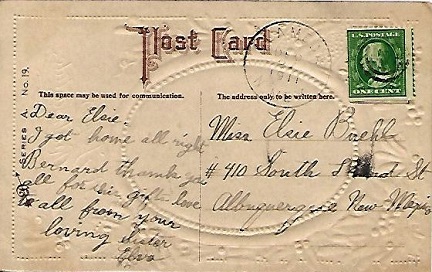 Post Card
U.S. POSTAGE
ONE CENT
1911
SERIES A No. 19.
This space may be used for communication.
The address only to be written here.
Dear Elsie
I got home all right
Bernard thanks you
all for his gift love
to all from your
loving sister
Elva
Miss Elsie
# 410 South St
Albuquerque New Mexico